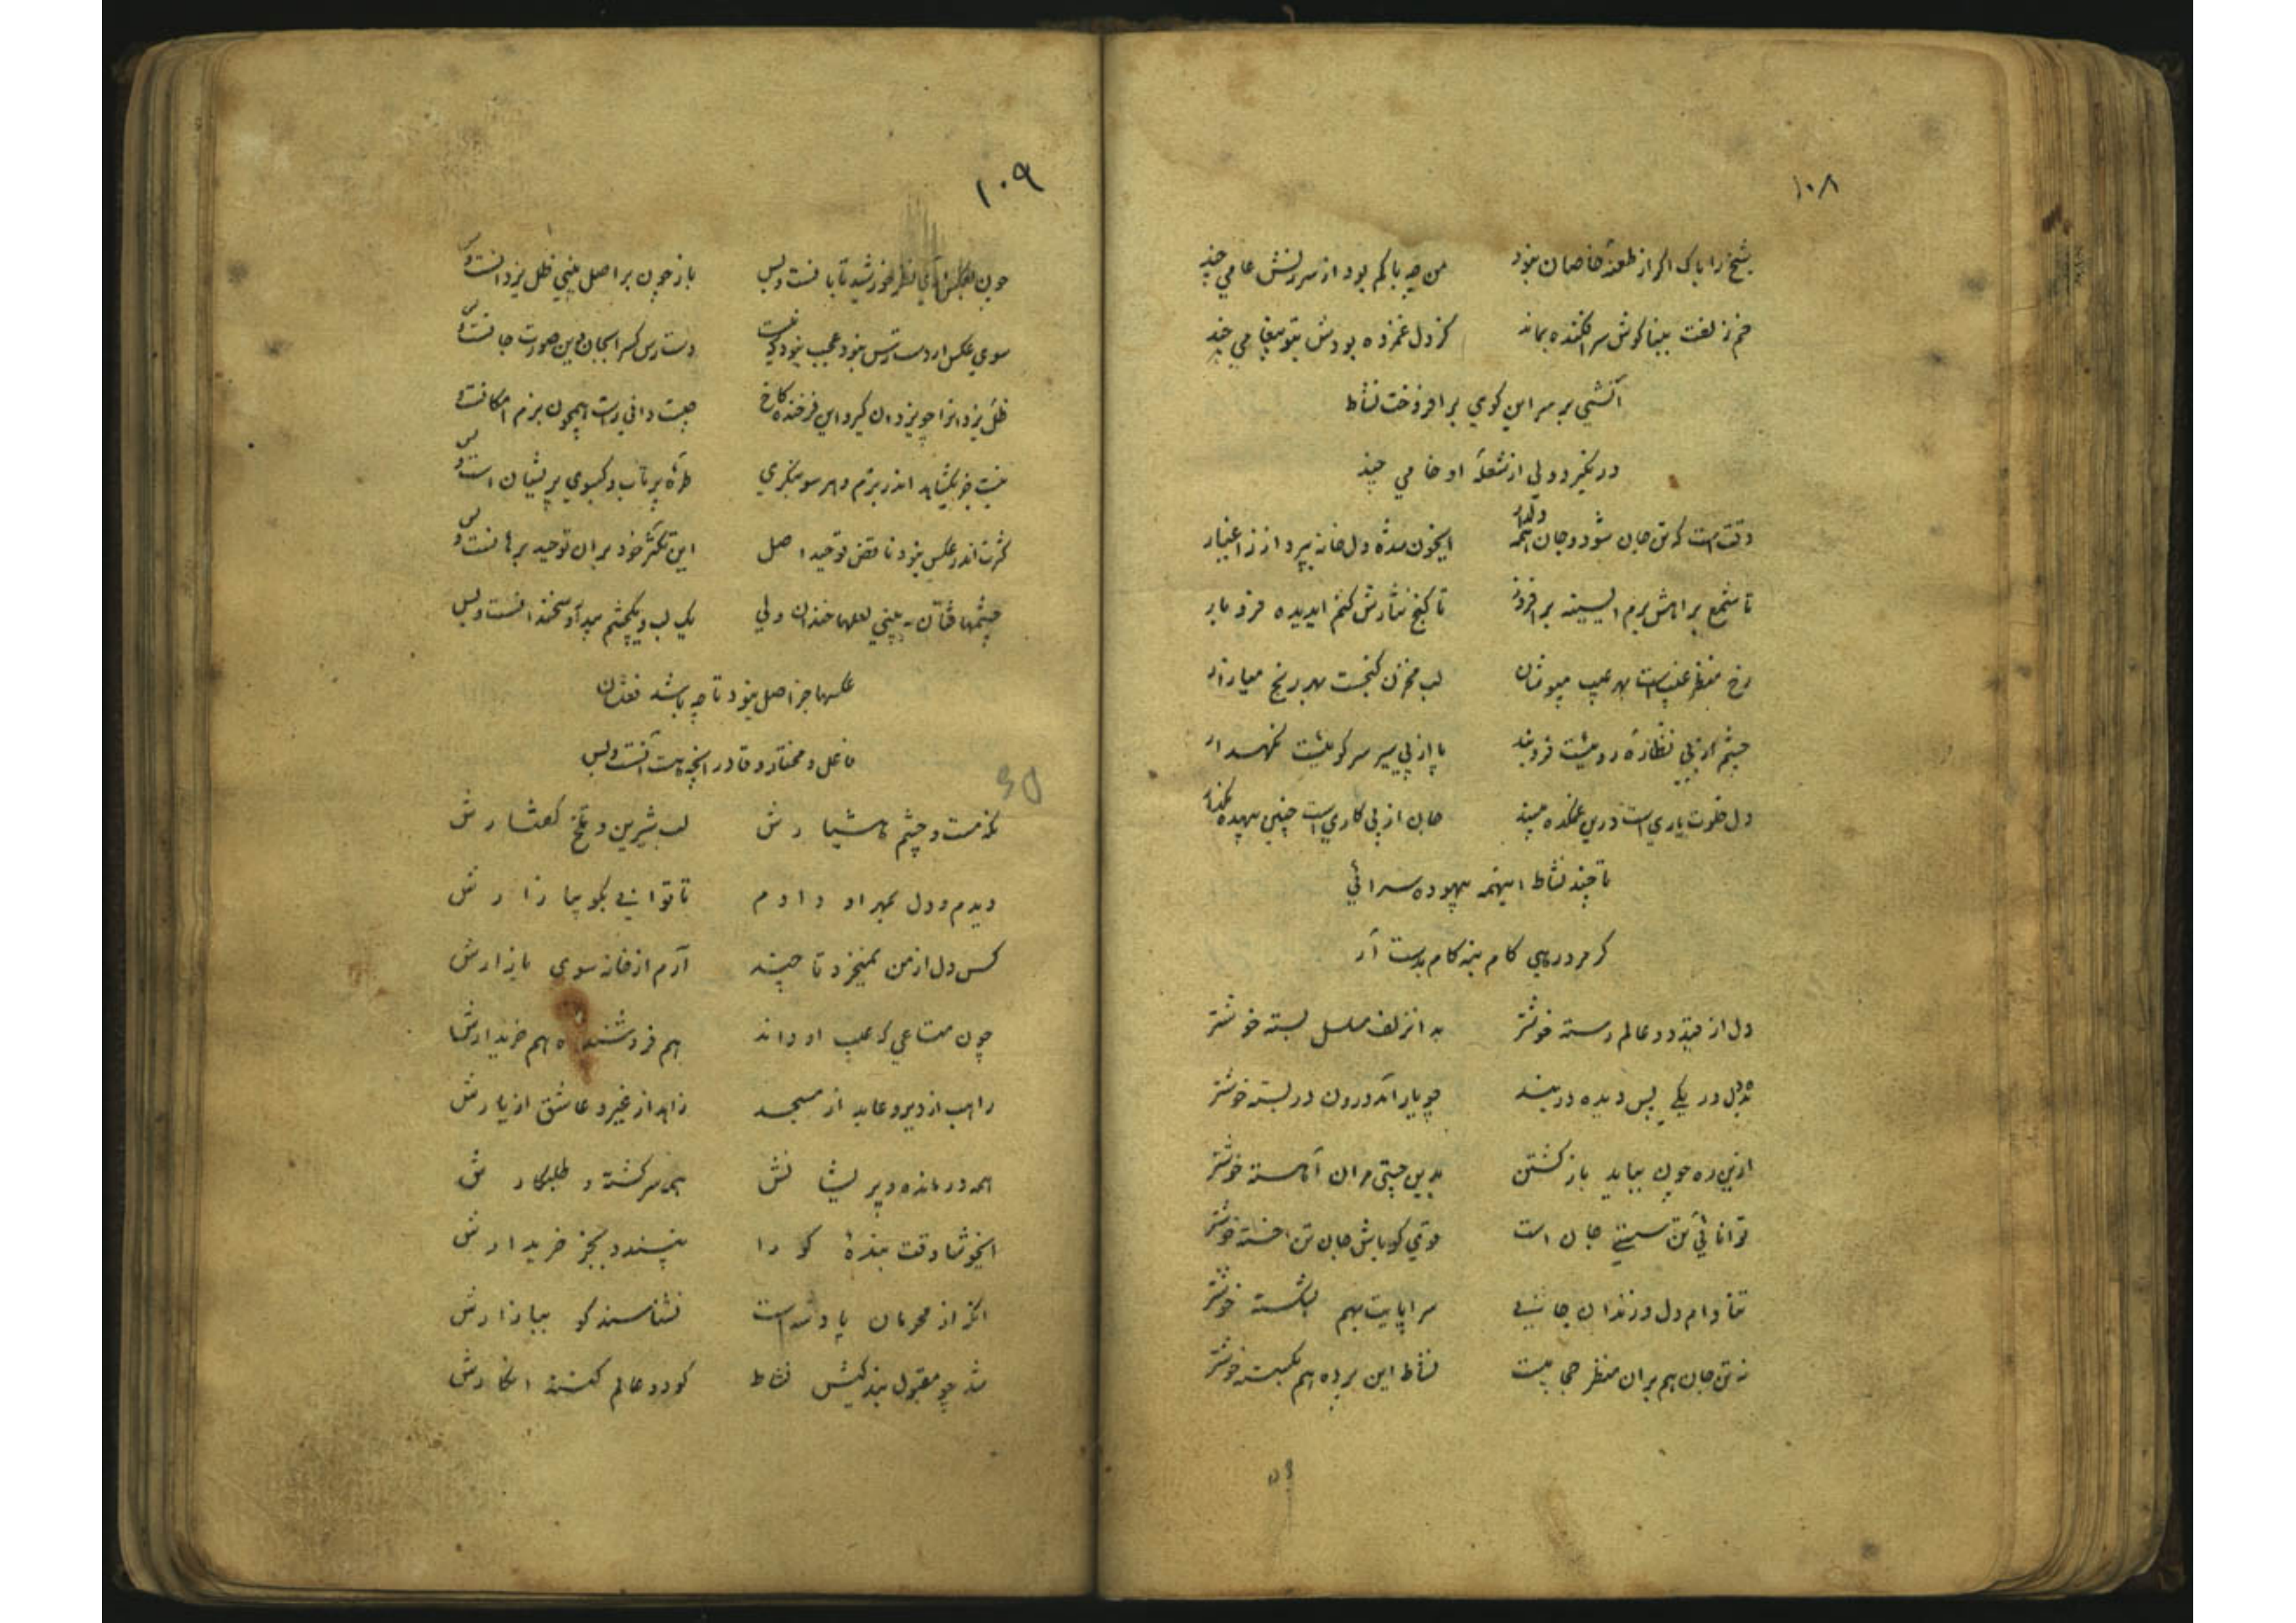 ۱۰۸
شیخ را باک اگر از طعنهٔ خاصان نبود من چه باکم بود از سرزنش عامی چند
خم زلفت ببناکوش سرافکنده بماند کز دل غمزده بودش بتو پیغامی چند
آتشی بر سر این کوی برافروخت نشاط
در نگیرد ولی از شعلهٔ او خامی چند
وله
وقتست که تن جان شود و جان همه دلدار ایخون شده دل خانه بپرداز ز اغیار
تا شمع براهش برم ایسینه برافروز تا کنج نثارش کنم ایدیده فرو بار
رخ منظر غیبست بهر عیب مپوشان لب مخزن کنجست بهر رنج میازار
چشم از پی نظارهٔ رویشت فروبند پا از پی سیر سر کویشت نگهدار
دل خلوت یاری است درین غمکده مپسند جان از پی کاری است چنین بیهده مگذار
تا چند نشاط اینهمه بیهوده سرائی
کر مرد رهی کام بنه کام بدست آر
دل از قید دو عالم رسته خوشتر به آنزلف مسلسل بسته خوشتر
بدل در یکی پس دیده در بند چو یار آمد درون در بسته خوشتر
ازین ره چون بباید باز کشتن بدین چستی مران آهسته خوشتر
توانائی تن سستی جان است قوی کو باش جان تن خسته خوشتر
تنا دام دل و زندان جانی سراپایت بهم بشکسته خوشتر
نه تن جان هم بران منظر حجابیست نشاط این پرده هم بکسسته خوشتر
۱۰۹
چون بعکس آری نظر خورشید تابانست و بس باز چون بر اصل بینی ظل یزدانست و بس
سوی عکس ار دسترس نبود عجب نبود که نیست دسترس کس را بجان وین صورت جانست و بس
ظل یزدانرا چو یزدان کیرد این فرخنده کاخ جیست دانی راست همچون بزم امکانست و بس
نیست جز یکشاهد اندر بزم و هر سو بنکری طرهٔ پر تاب و کیسوی پریشان است و بس
کثرت اندر عکس نبود ناقض توحید اصل این تکثر خود بران توحید برهانست و بس
چشمها فتان ببینی لعلها خندان ولی یک لب و یکچشم سحرآمیز خندانست و بس
عکسها جز اصل نبود تا چه باشد نقشان
فاعل و مختار و قادر انچه هست آنست و بس
نکه مست و چشم هشیارش لب شیرین و تلخ کفتارش
دیدم و دل بمهر او دادم تا توانی بکو بیازارش
کس دل از من نمیخرد تا چند آرم از خانه سوی بازارش
چون متاعی که عیب او داند هم فروشنده هم خریدارش
راهب از دیر و عابد از مسجد زاهد از غیر و عاشق از یارش
همه درمانده و پریشانش همه سرکشته و طلبکارش
ایخوشا وقت بندهٔ کو را نپسندد بجز خریدارش
انکه از محرمان پادشه است نشناسند کو ببازارش
شد چو مقبول بندکیش نشاط کو دو عالم کنند انکارش